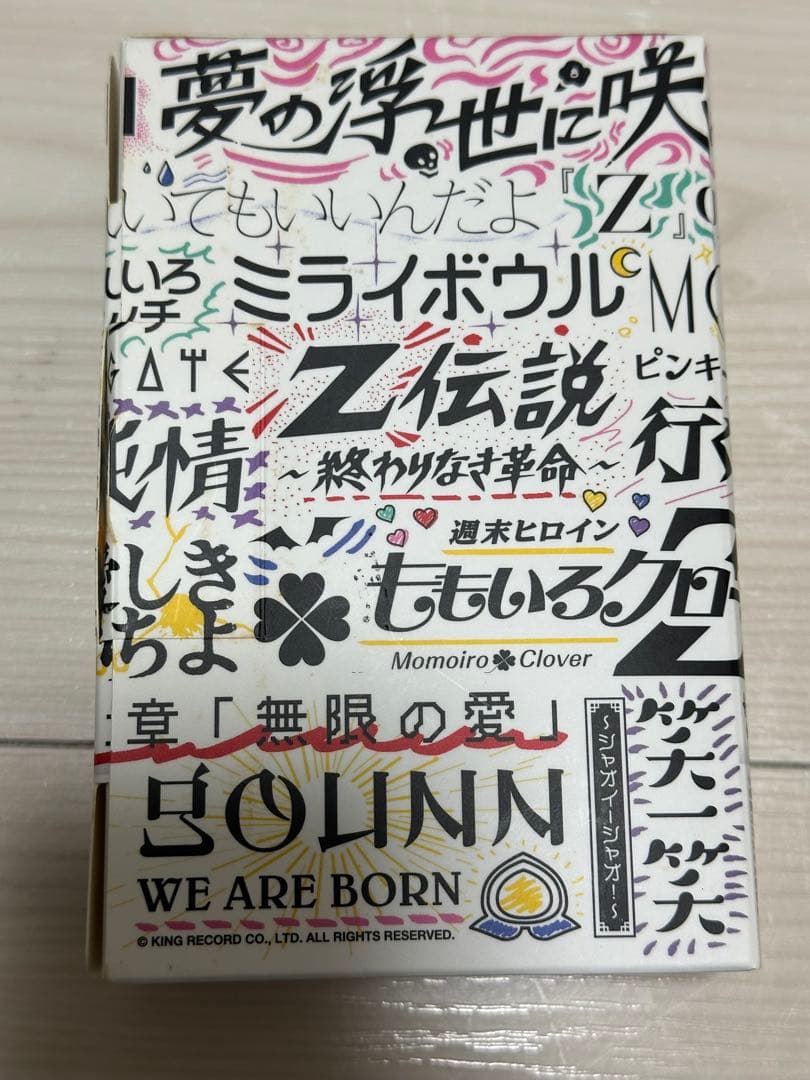 夢の浮世に咲
いてもいいんだよ『Z』
いろ
ッチ
ミライボウル
Z伝説
〜終わりなき革命〜
ピンキ
行
情
週末ヒロイン
ももいろクロ
Z
Momoiro Clover
しき
ちよ
章「無限の愛」
GOUNN
〜シャガイーシャガ!〜
笑一笑
WE ARE BORN
© KING RECORD CO., LTD. ALL RIGHTS RESERVED.